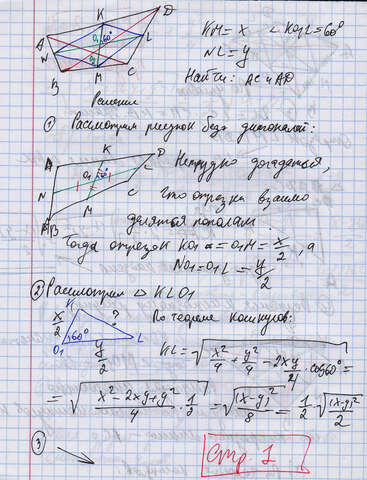 K D
A O₁ 60° L
N
B M C
KM = x ∠ KO₁L = 60°
NL = y
Найти: AC и AD
Решение
① Рассмотрим рисунок без диагоналей:
K D
A O₁ L
N C
M
B
Нетрудно догадаться,
что отрезки взаимно
делятся пополам
Тогда отрезок KO₁ = O₁M = x/2, а
NO₁ = O₁L = y/2
② Рассмотрим △ KLO₁
K
x/2 ?
60° L
O₁ y/2
По теореме косинусов:
KL = √(x²/4 + y²/4 - 2xy/4 · cos60°) =
= √((x² - 2xy + y²)/4 · 1/2) = √((x-y)²/8) = 1/2 √((x-y)²/2)
③
Стр 1